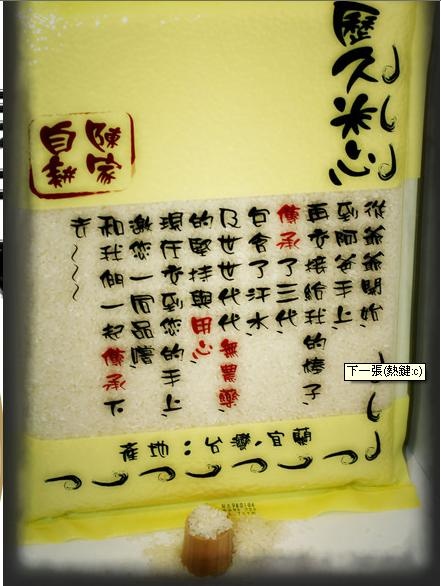 歷久米心
陳家
自耕
從爺爺開始,
到阿爸手上,
再交接給我的棒子,
傳承了三代,
包含了汗水,
及世世代代無農藥,
的堅持與用心,
現在交到您的手上,
邀您一同品嚐,
和我們一起傳承下
去~~~
下一張(熱鍵:c)
產地:台灣.宜蘭